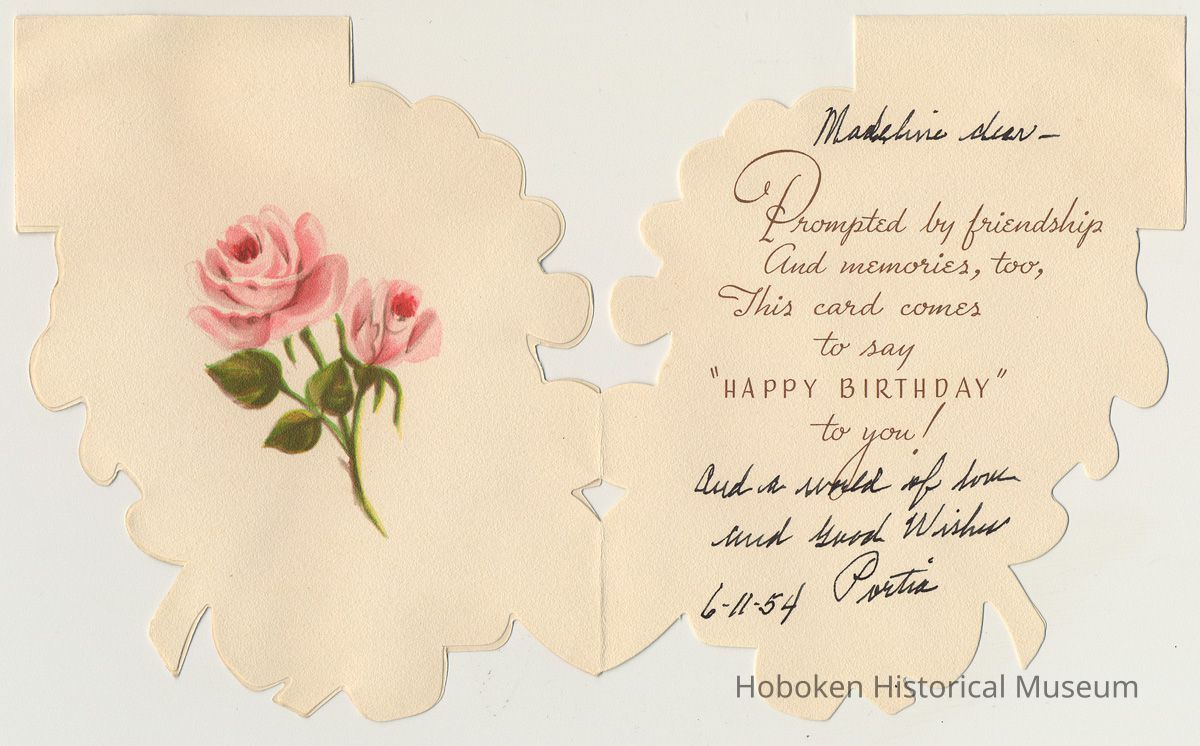 Madeline dear-
Prompted by friendship
And memories, too,
This card comes
to say
"HAPPY BIRTHDAY"
to you!
And a world of love
and good Wishes
Portia
6-11-54
Hoboken Historical Museum